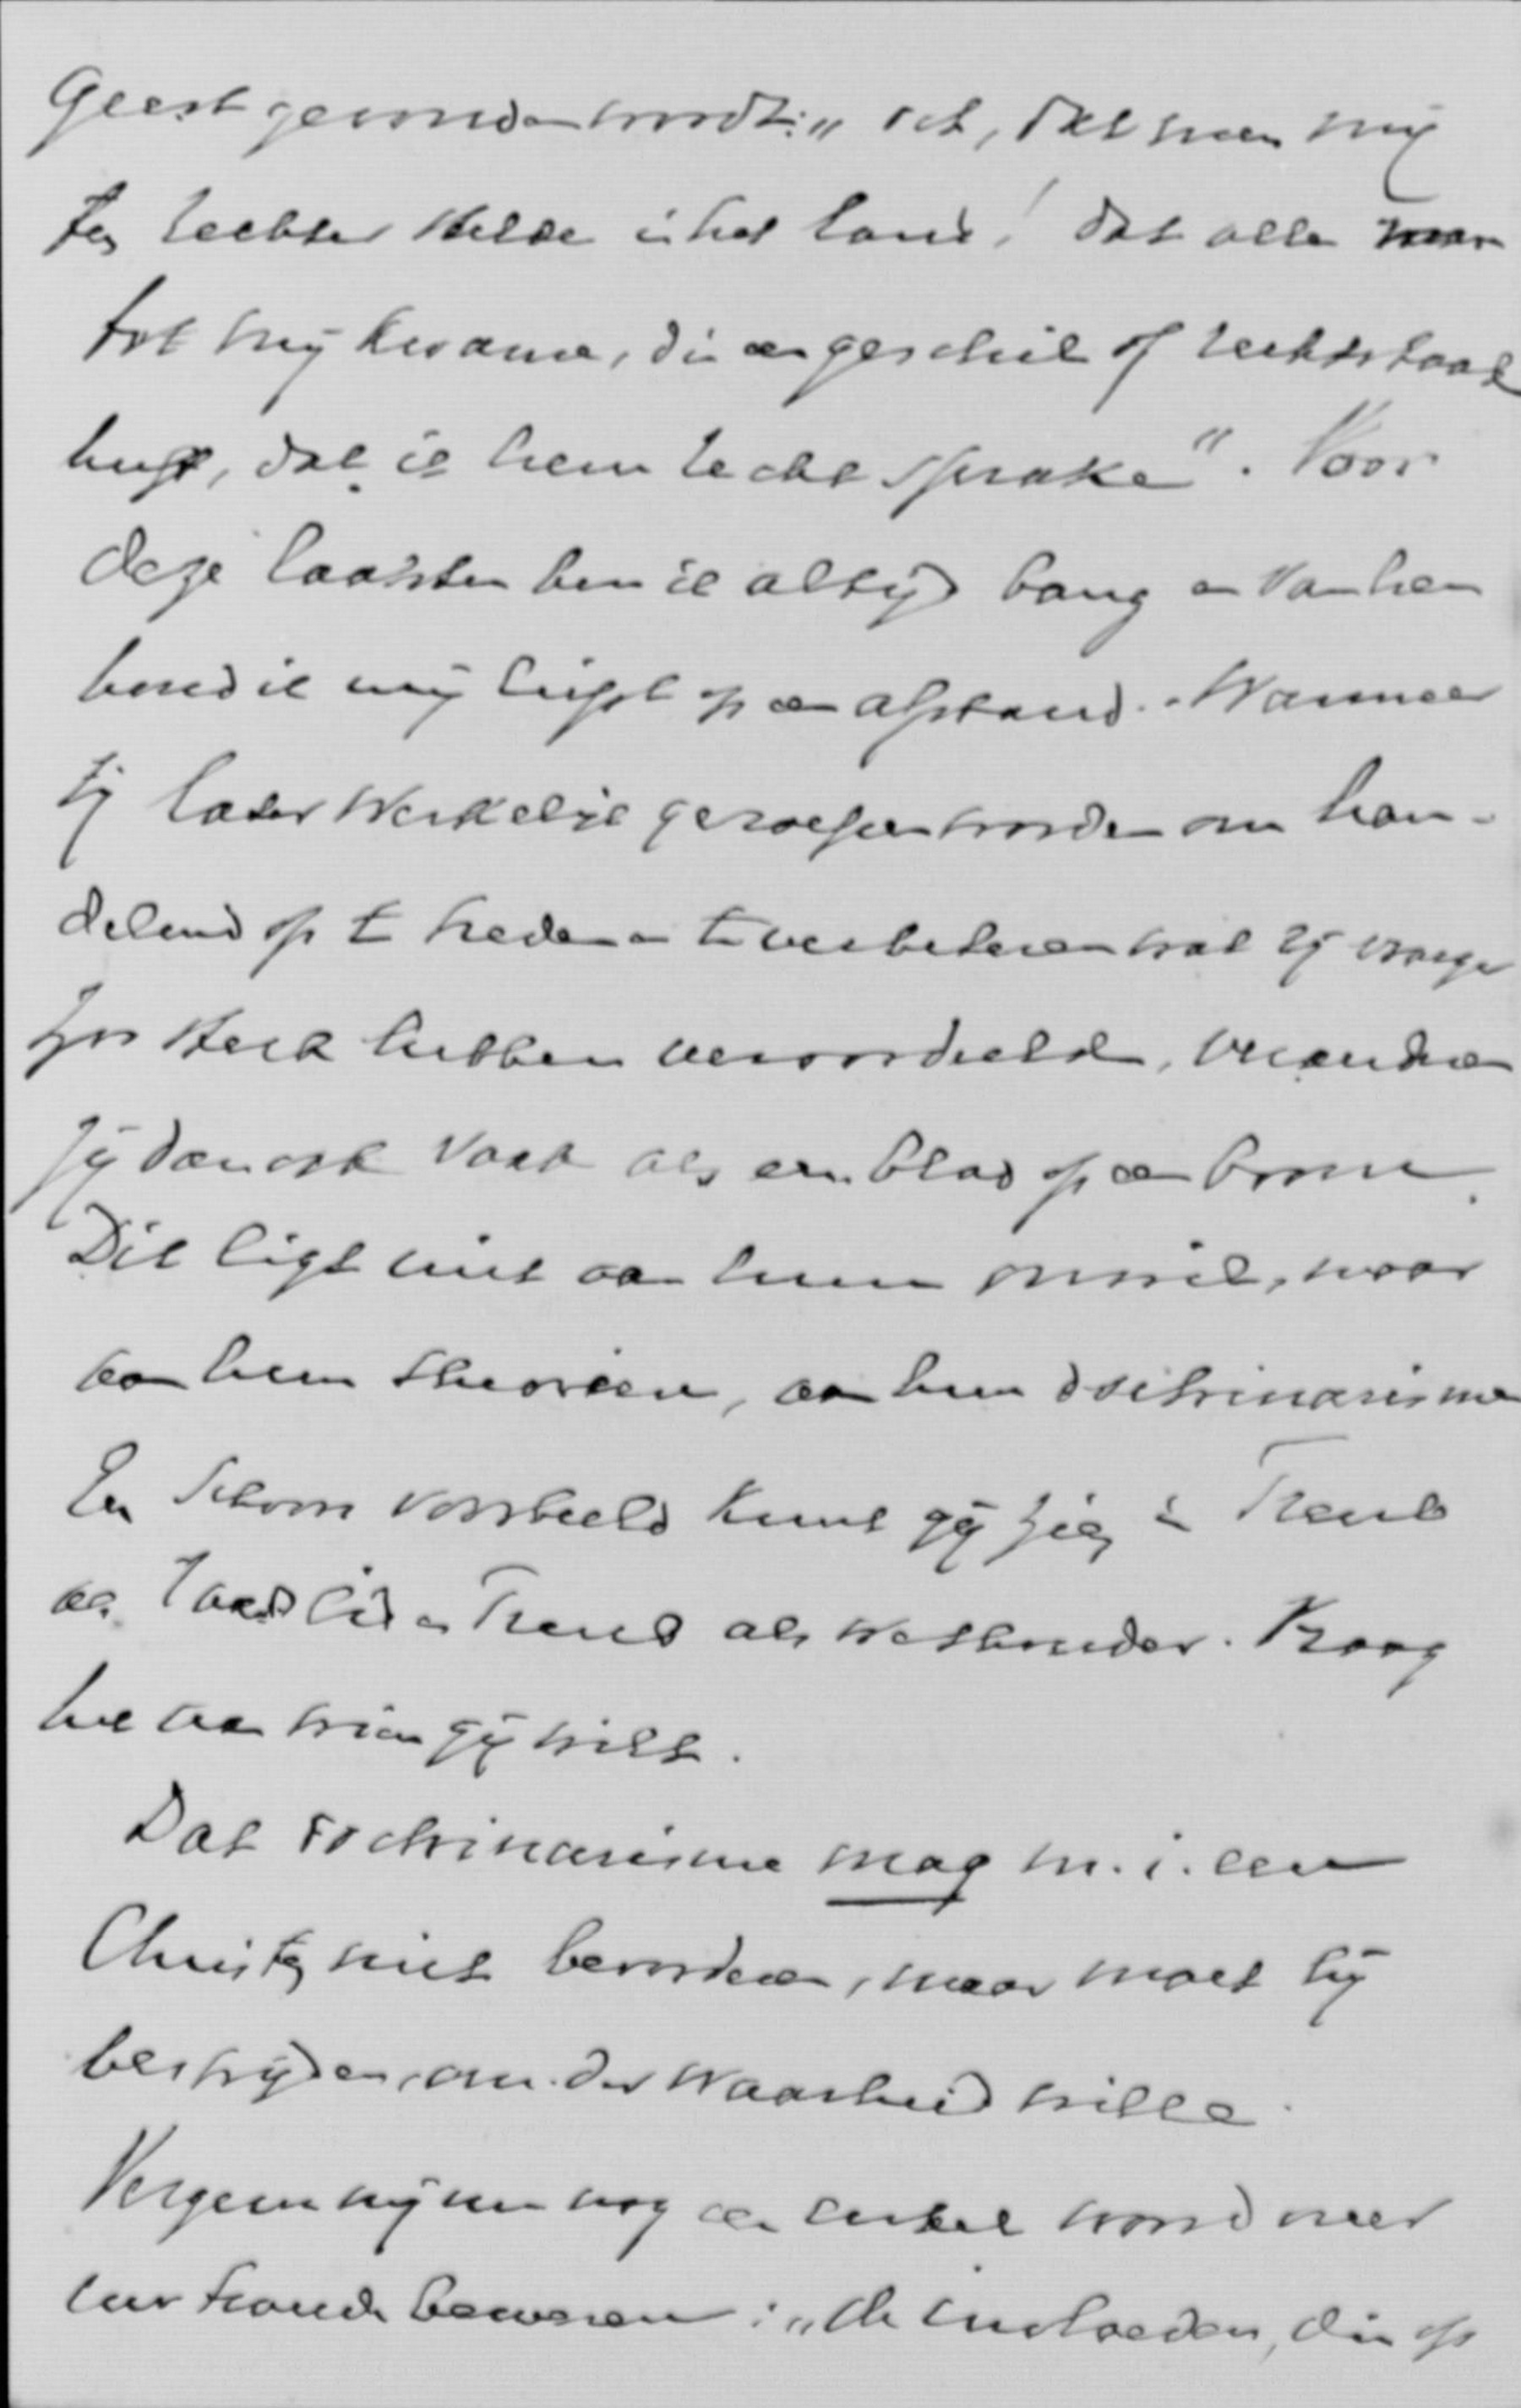 Geest gevonden wordt: „och, dat men mij
ten rechter stelde in het land! dat alle man
tot mij kwame, die een geschil of rechtzaak
heeft, dat ik hem recht sprake". Voor
deze laatsten ben ik altijd bang en van hen
houd ik mij liefst op een afstand. Wanneer
zij later werkelijk geroepen worden om han-
delend op te treden en te verbeteren wat zij vroeger
zoo sterk hebben veroordeeld, veranderen
zij dan ook vaak als een blad op een boom.
Dit ligt niet aan hun onwil, maar
aan hun theorieën, aan hun doctrinarisme
Een schoon voorbeeld kunt gij zien in Treub
als raadslid en Treub als wethouder. Vraag
het aan wien gij wilt.
Dat doctrinarisme mag m.i. een
Christen niet bevorderen, maar moet hij
bestrijden, om der waarheid wille.
Vergun mij nu nog een enkel woord over
Uw tweede bezwaren: „de invloeden, die op